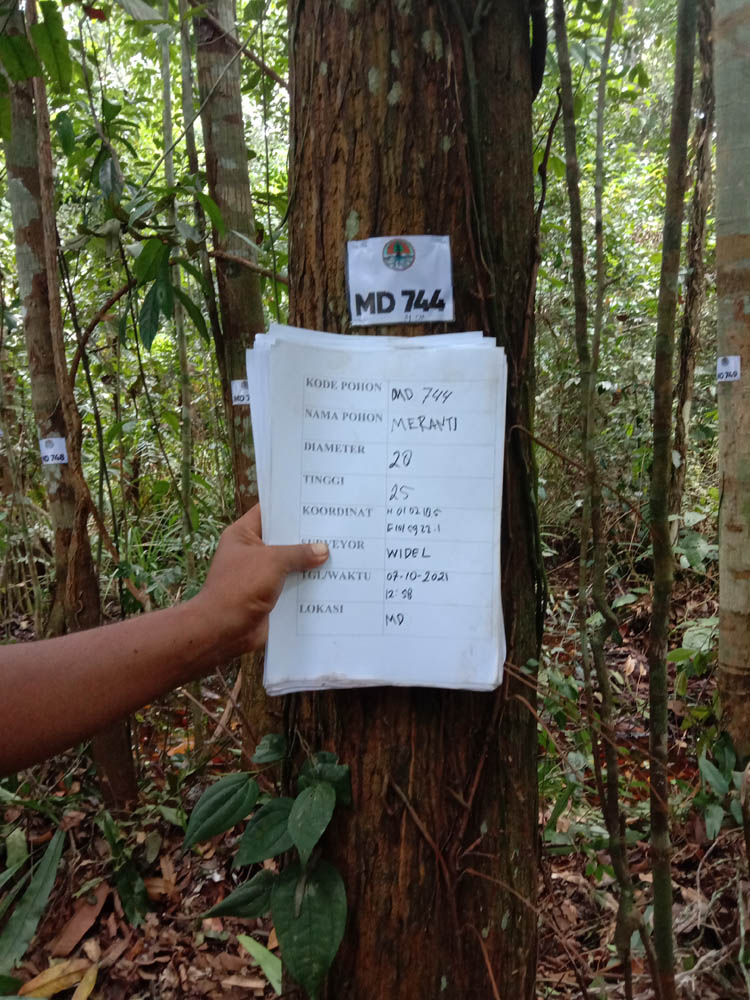 MD 744
KODE POHON MD 744
NAMA POHON MERANTI
DIAMETER 20
TINGGI 25
KOORDINAT N 01 02 10.5
E 101 59 22.1
SURVEYOR WIDEL
TGL/WAKTU 07-10-2021
12:58
LOKASI MD
MD 748